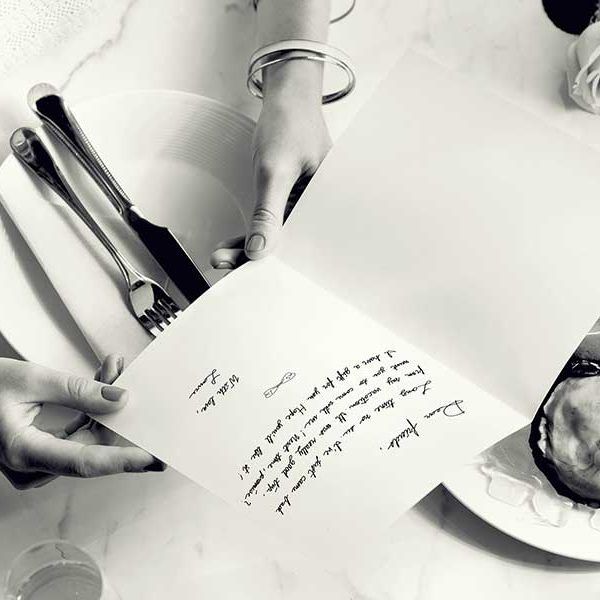 Dear friends,
Long time no see I've just came back
from my vacation. It was really good trip.
want you to come with me! Next time, promise?
I have a gift for you. Hope you'll like it!
With love,